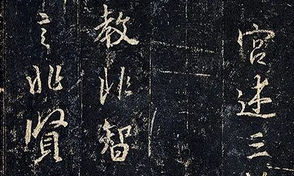 宫述三
教非智
言非賢